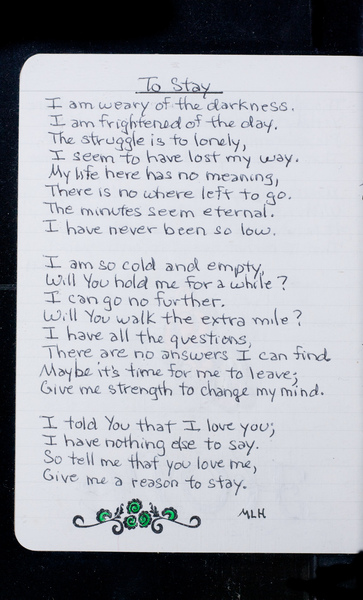 To Stay
I am weary of the darkness.
I am frightened of the day.
The struggle is to lonely,
I seem to have lost my way.
My life here has no meaning,
There is no where left to go.
The minutes seem eternal.
I have never been so low.
I am so cold and empty,
Will You hold me for a while?
I can go no further.
Will You walk the extra mile?
I have all the questions,
There are no answers I can find
Maybe it's time for me to leave;
Give me strength to change my mind.
I told You that I love you;
I have nothing else to say.
So tell me that you love me,
Give me a reason to stay.
MLH